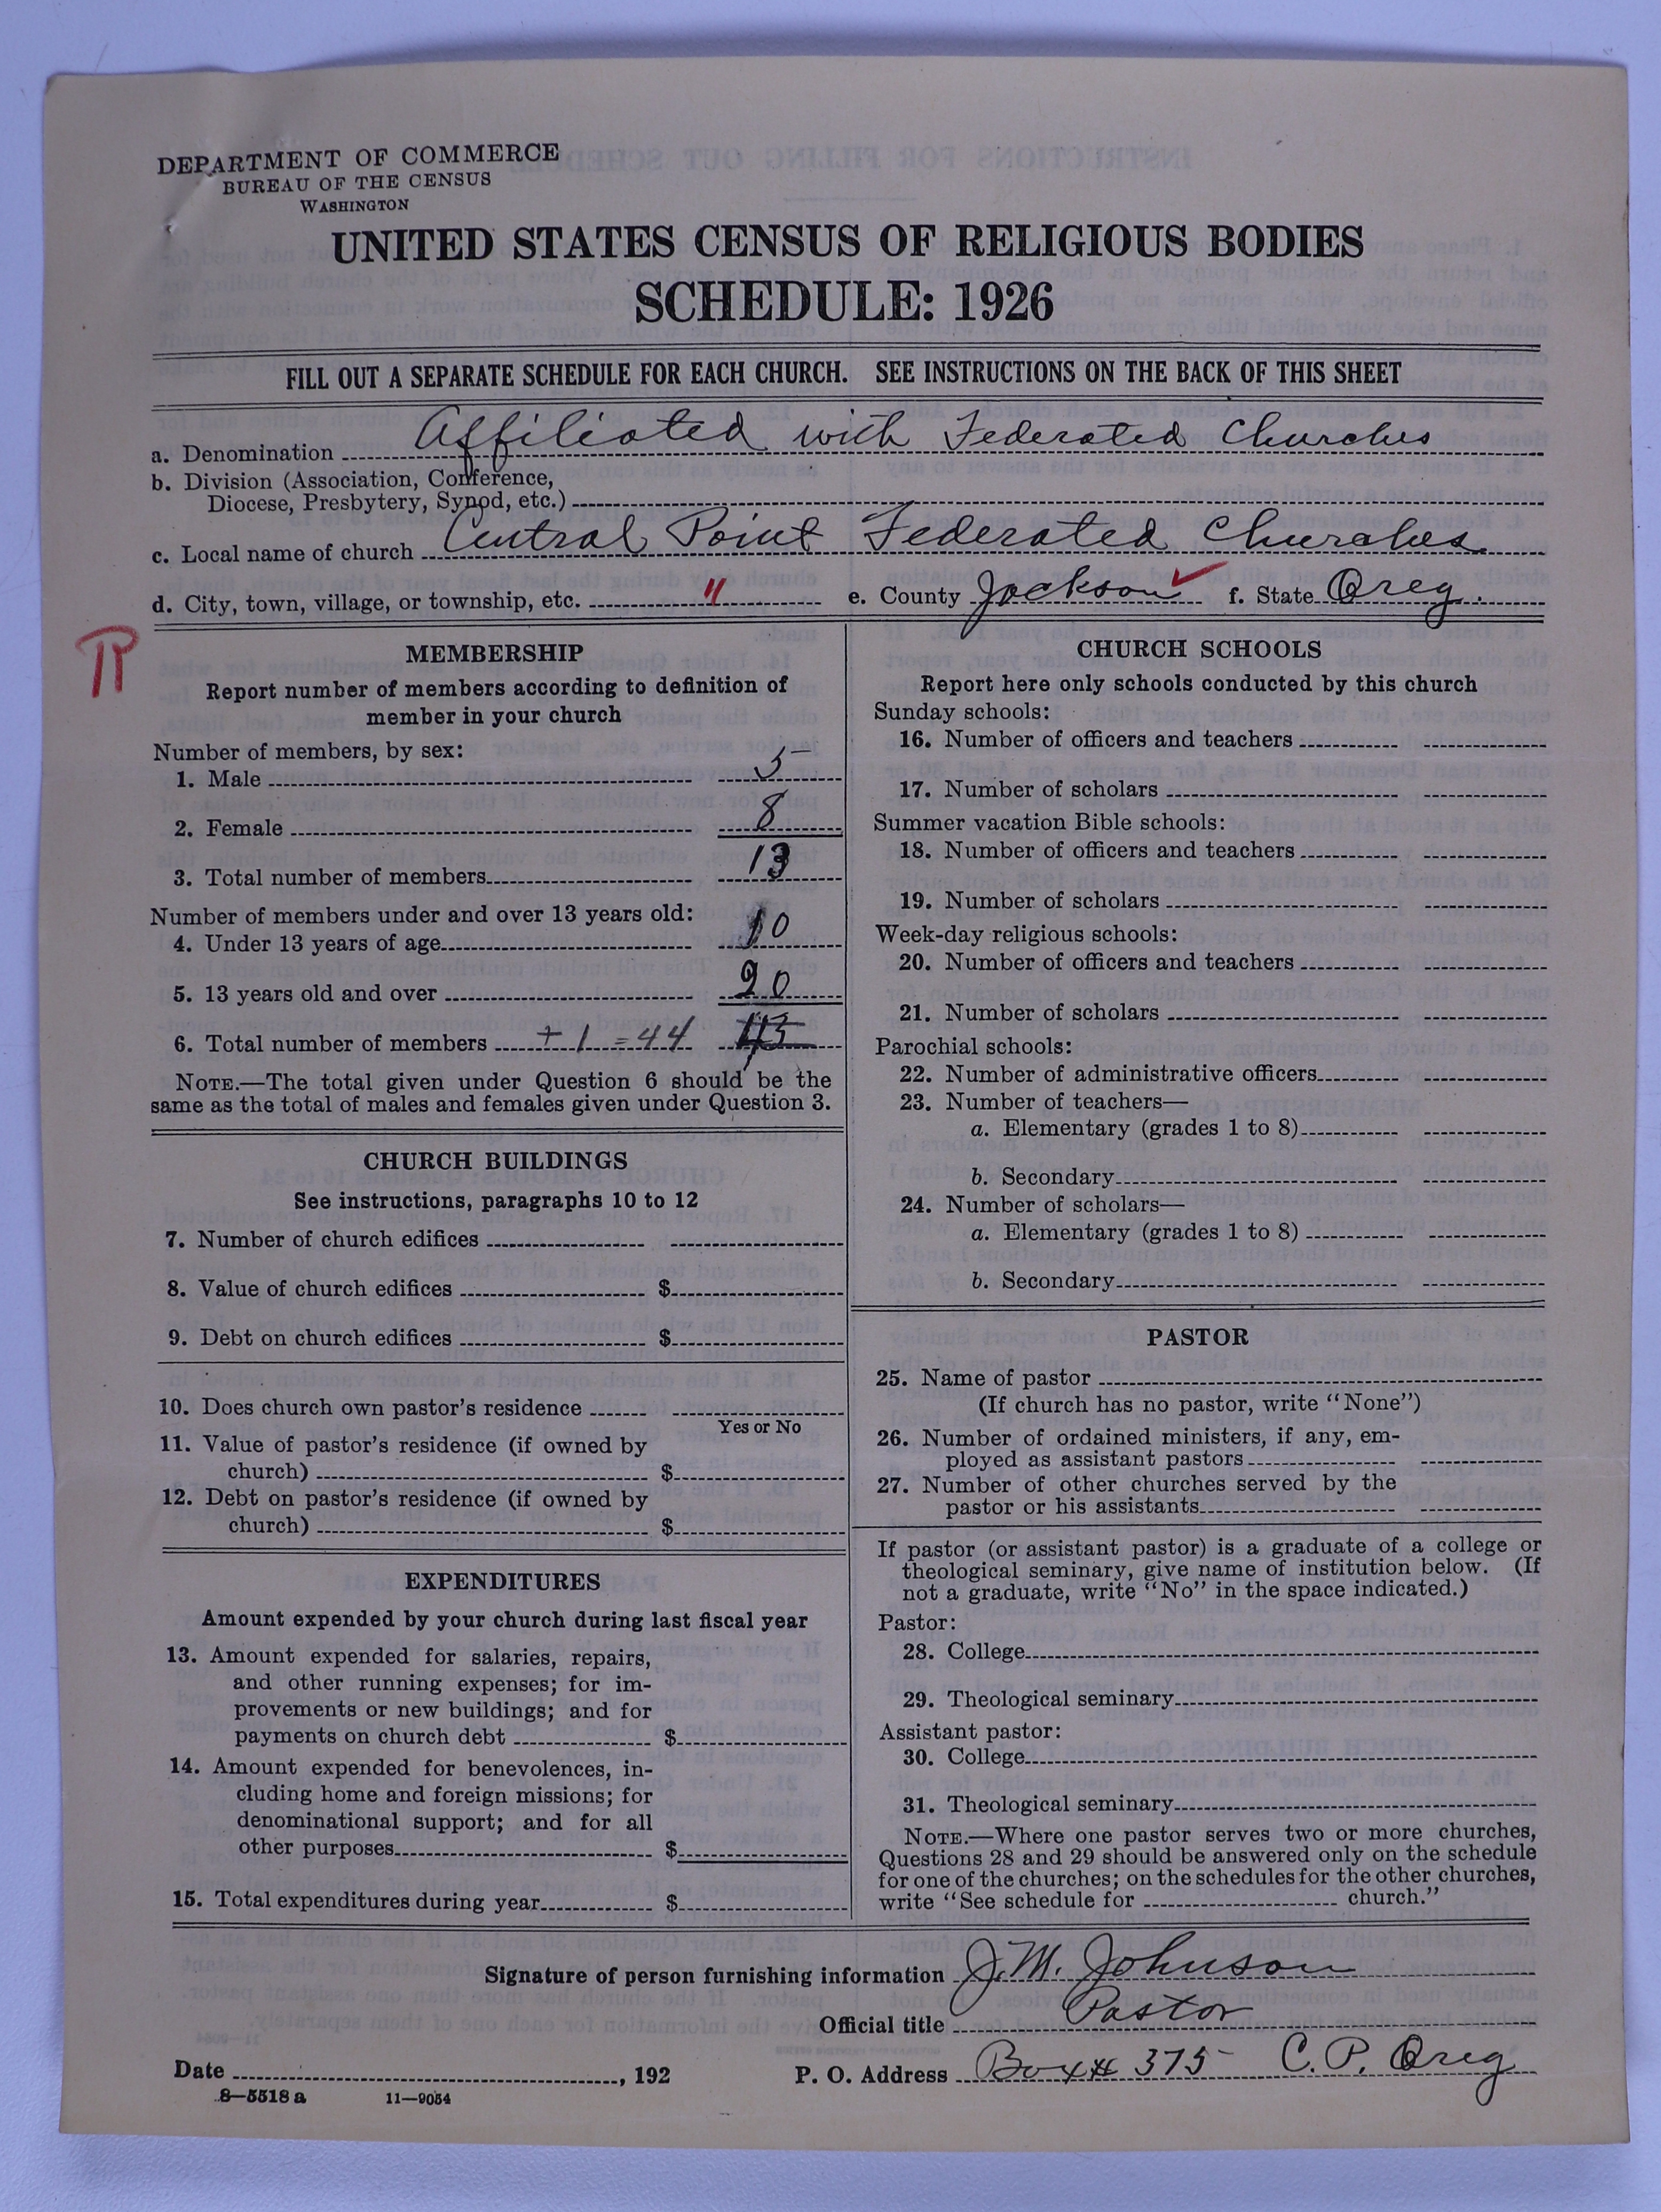 DEPARTMENT OF COMMERCE
BUREAU OF THE CENSUS
WASHINGTON
UNITED STATES CENSUS OF RELIGIOUS BODIES
SCHEDULE: 1926
FILL OUT A SEPARATE SCHEDULE FOR EACH CHURCH. SEE INSTRUCTIONS ON THE BACK OF THIS SHEET
a. Denomination Affiliated with Federated Churches
b. Division (Association, Conference,
Diocese, Presbytery, Synod, etc.)
c. Local name of church Central Point Federated Churches
d. City, town, village, or township, etc. " e. County Jackson ✓ f. State Oreg.
MEMBERSHIP
Report number of members according to definition of
member in your church
Number of members, by sex:
1. Male 5
2. Female 8
3. Total number of members 13
Number of members under and over 13 years old:
4. Under 13 years of age 10
5. 13 years old and over 20
6. Total number of members + 1 = 44 43
NOTE.—The total given under Question 6 should be the
same as the total of males and females given under Question 3.
CHURCH BUILDINGS
See instructions, paragraphs 10 to 12
7. Number of church edifices
8. Value of church edifices $
9. Debt on church edifices $
10. Does church own pastor's residence
Yes or No
11. Value of pastor's residence (if owned by
church) $
12. Debt on pastor's residence (if owned by
church) $
EXPENDITURES
Amount expended by your church during last fiscal year
13. Amount expended for salaries, repairs,
and other running expenses; for im-
provements or new buildings; and for
payments on church debt $
14. Amount expended for benevolences, in-
cluding home and foreign missions; for
denominational support; and for all
other purposes $
15. Total expenditures during year $
CHURCH SCHOOLS
Report here only schools conducted by this church
Sunday schools:
16. Number of officers and teachers
17. Number of scholars
Summer vacation Bible schools:
18. Number of officers and teachers
19. Number of scholars
Week-day religious schools:
20. Number of officers and teachers
21. Number of scholars
Parochial schools:
22. Number of administrative officers
23. Number of teachers—
a. Elementary (grades 1 to 8)
b. Secondary
24. Number of scholars—
a. Elementary (grades 1 to 8)
b. Secondary
PASTOR
25. Name of pastor
(If church has no pastor, write "None")
26. Number of ordained ministers, if any, em-
ployed as assistant pastors
27. Number of other churches served by the
pastor or his assistants
If pastor (or assistant pastor) is a graduate of a college or
theological seminary, give name of institution below. (If
not a graduate, write "No" in the space indicated.)
Pastor:
28. College
29. Theological seminary
Assistant pastor:
30. College
31. Theological seminary
NOTE.—Where one pastor serves two or more churches,
Questions 28 and 29 should be answered only on the schedule
for one of the churches; on the schedules for the other churches,
write "See schedule for church."
Signature of person furnishing information J. M. Johnson
Official title Pastor
Date , 192 P. O. Address Box # 375 C. P. Oreg
8—5518 a 11—9054